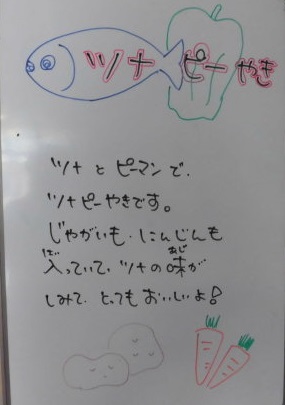 ツナピーやき
ツナとピーマンで、
ツナピーやきです。
じゃがいも、にんじんも
はい あじ
入っていて、ツナの味が
しみて、とってもおいしいよ!